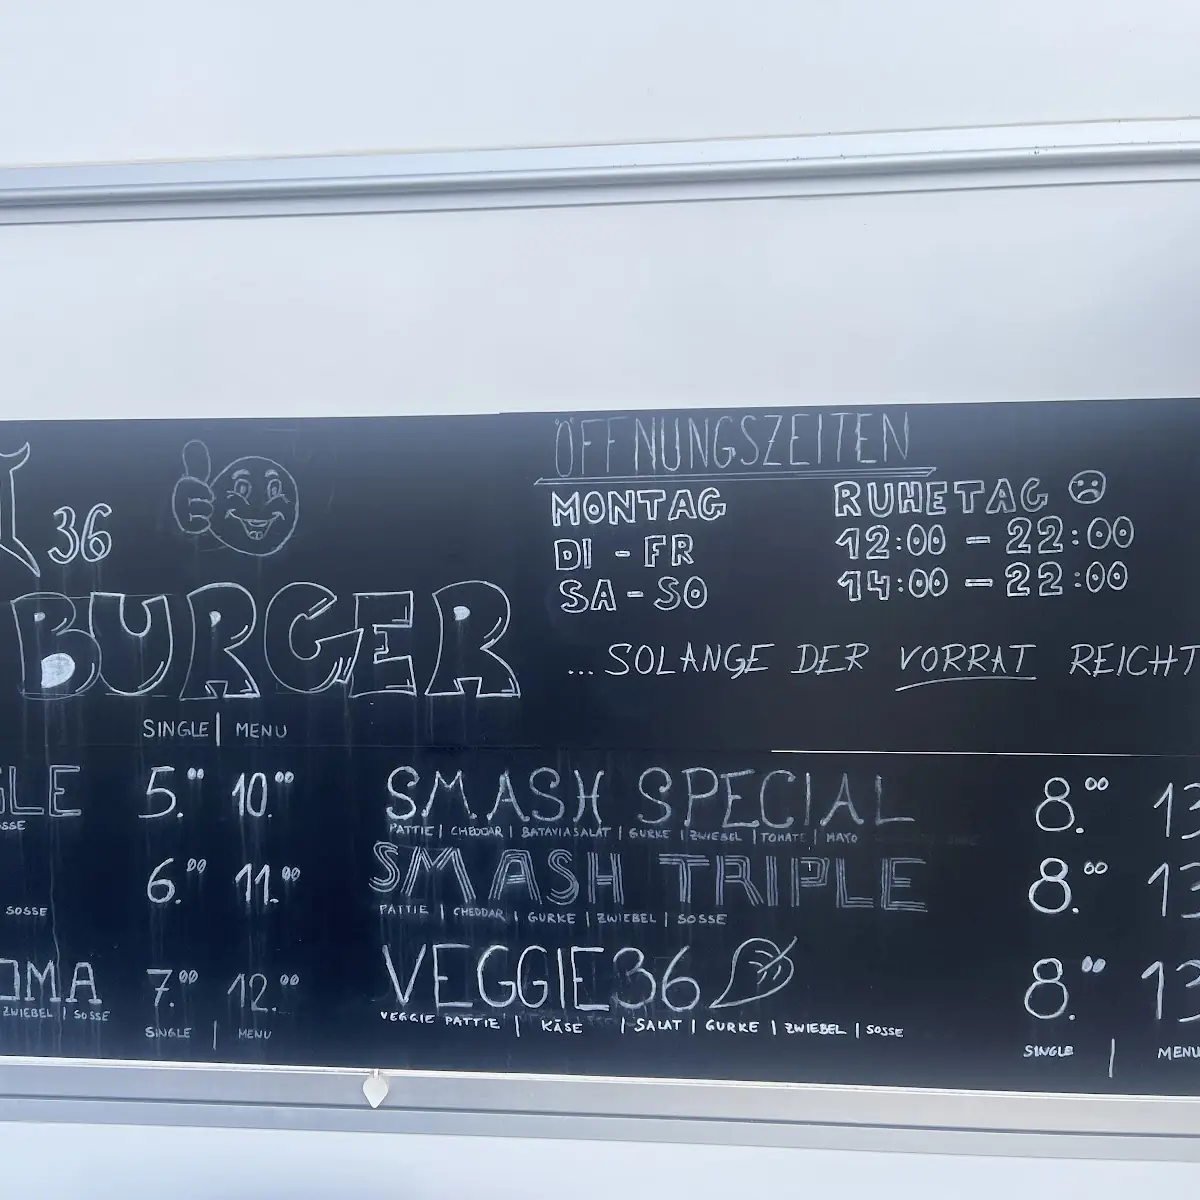 36
BURGER
SINGLE | MENU
5.00 10.00
SOSSE
6.00 11.00
SOSSE
7.00 12.00
ZWIEBEL | SOSSE
SINGLE | MENU
ÖFFNUNGSZEITEN
MONTAG RUHETAG
DI - FR 12:00 - 22:00
SA - SO 14:00 - 22:00
... SOLANGE DER VORRAT REICHT
SMASH SPECIAL 8.00 13
PATTIE | CHEDDAR | BATAVIASALAT | GURKE | ZWIEBEL | TOMATE | MAYO
SMASH TRIPLE 8.00 13
PATTIE | CHEDDAR | GURKE | ZWIEBEL | SOSSE
VEGGIE36 8.00 13
VEGGIE PATTIE | KÄSE | SALAT | GURKE | ZWIEBEL | SOSSE
SINGLE | MENU